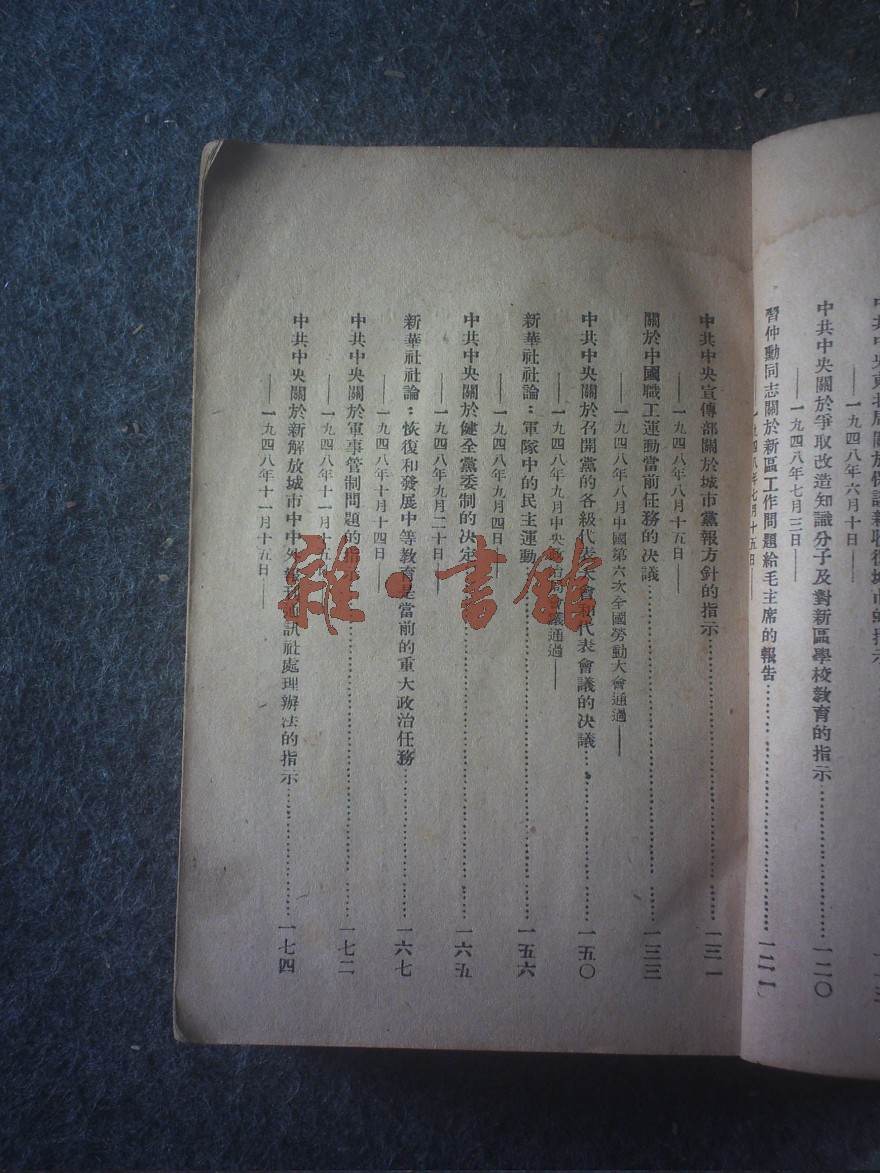 一九四八年六月十日——
中共中央關於爭取改造知識分子及對新區學校教育的指示……一二〇
——一九四八年七月三日——
習仲勳同志關於新區工作問題給毛主席的報告……
一九四八年七月十五日——
中共中央宣傳部關於城市黨報方針的指示……一三一
——一九四八年八月十五日——
關於中國職工運動當前任務的決議……一三三
——一九四八年八月中國第六次全國勞動大會通過——
中共中央關於召開黨的各級代表大會和代表會議的決議……一五〇
——一九四八年九月中央 局會議通過——
新華社社論：軍隊中的民主運動……一五六
——一九四八年九月四日——
中共中央關於健全黨委制的決定……一六五
——一九四八年九月二十日——
新華社社論：恢復和發展中等教育是當前的重大政治任務……一六七
——一九四八年十月十四日——
中共中央關於軍事管制問題的指 ……一七二
——一九四八年十一月十五日
中共中央關於新解放城市中中外 通訊社處理辦法的指示……一七四
——一九四八年十一月十五日——
雜·書館